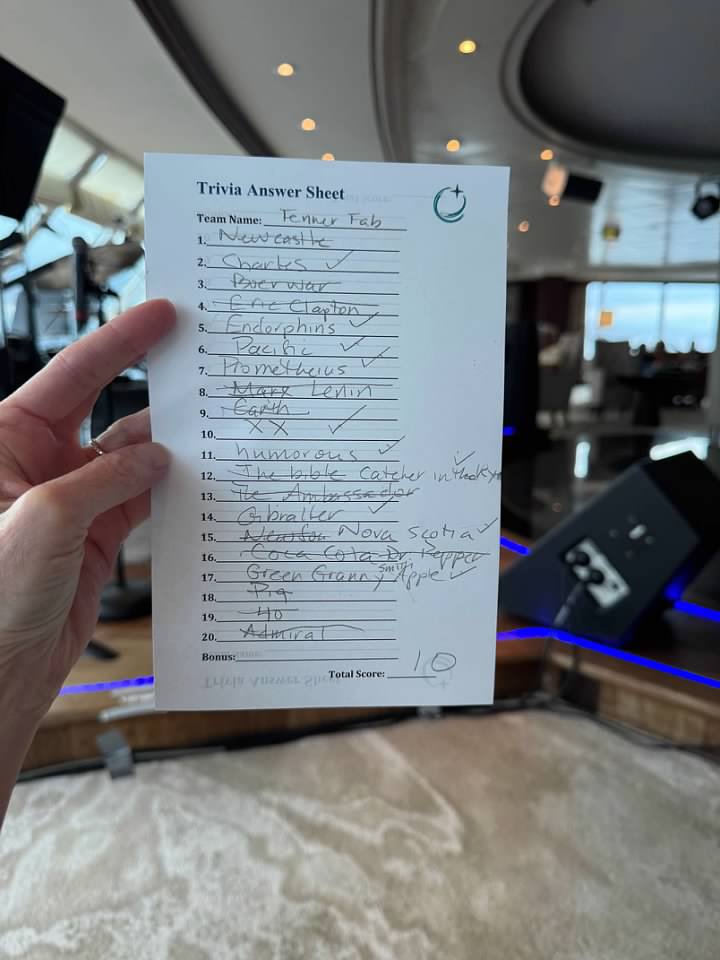 Trivia Answer Sheet
Team Name: Tenner Fab
1. Newcastle
2. Charles ✓
3. Boer War
4. Eric Clapton
5. Endorphins ✓
6. Pacific ✓
7. Prometheius ✓
8. Marx Lenin
9. Earth
10. XX ✓
11. humorous ✓
12. The bible Catcher in the Rye ✓
13. The Ambassador
14. Gibralter ✓
15. Nova Scotia ✓
16. Coca Cola Dr. Pepper
17. Green Granny Smith Apple ✓
18. Pig
19. 40
20. Admiral
Bonus:
Total Score: 10